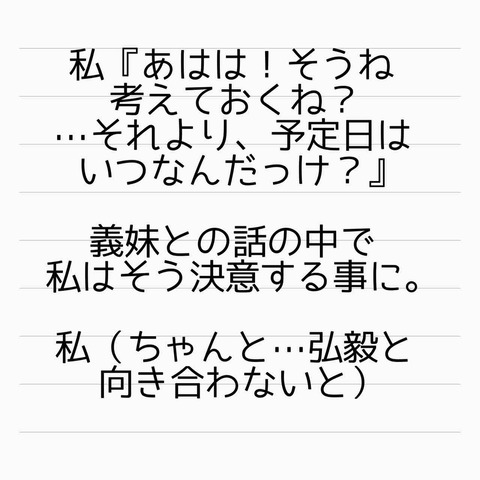 私『あはは！そうね
考えておくね？
…それより、予定日は
いつなんだっけ？』
義妹との話の中で
私はそう決意する事に。
私（ちゃんと…弘毅と
向き合わないと）